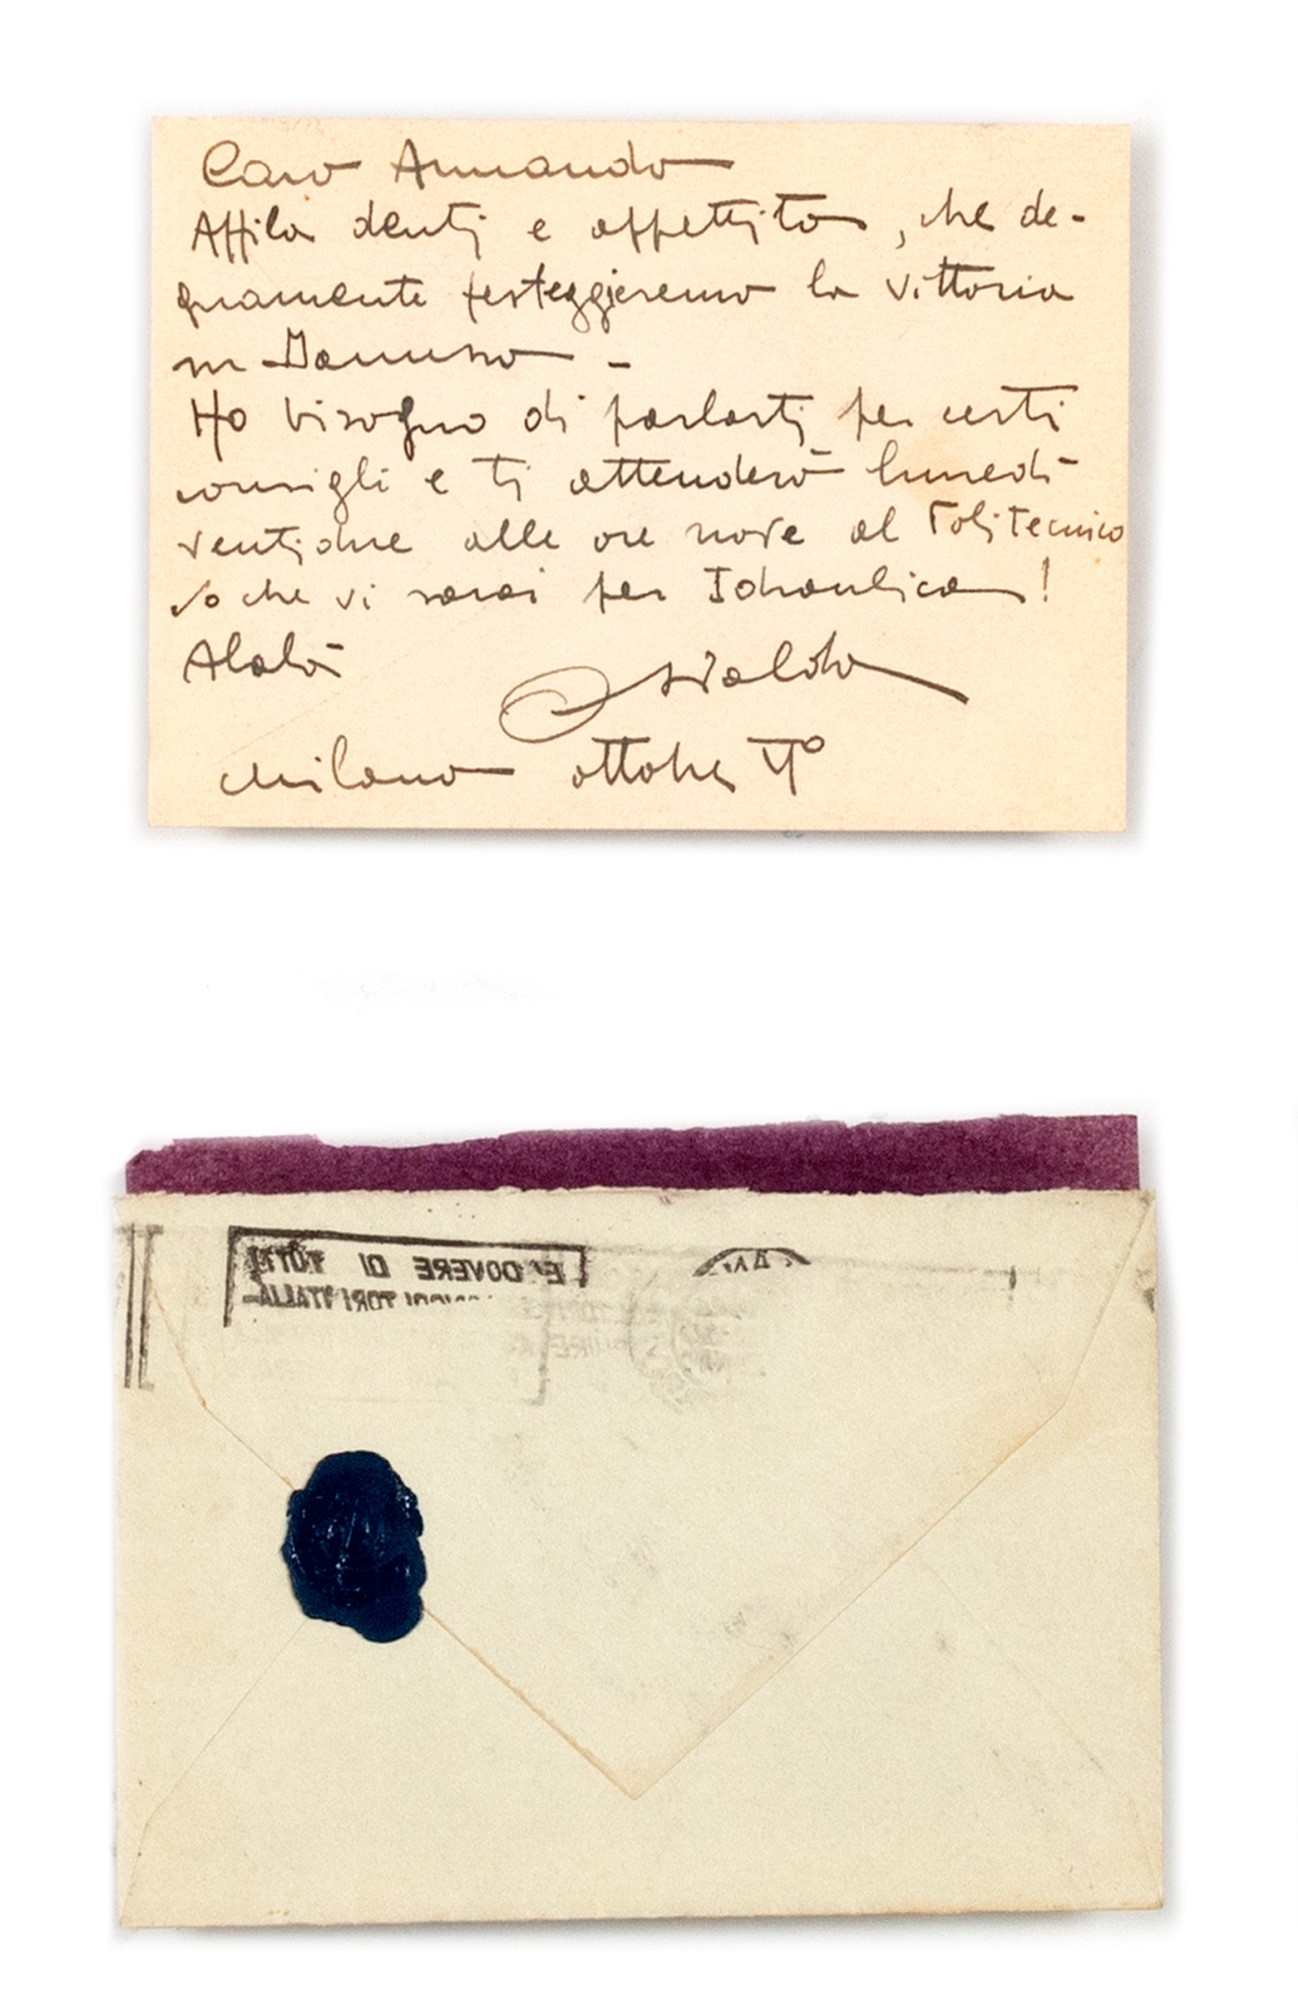 Caro Armando
Affila denti e appettito, che de-
gnamente festeggieremo la vittoria
su Danusso -
Ho bisogno di parlarti per certi
consigli e ti attenderò lunedì
ventidue alle ore nove al Politecnico
so che vi sarai per Idraulica!
Alalà
Osvaldo
Milano ottobre VI°
E' DOVERE DI TUTTI
ITALIA